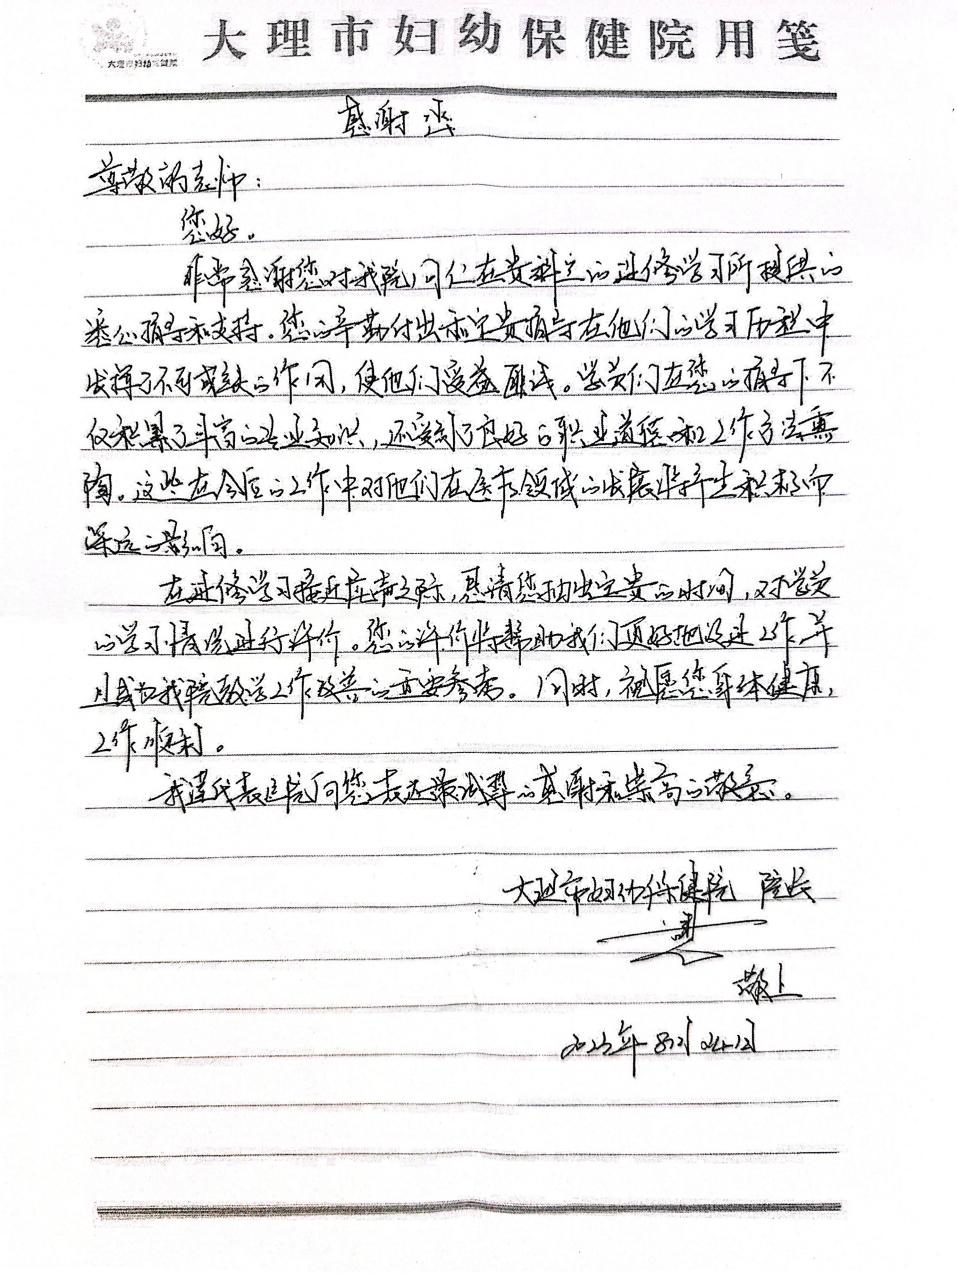 大理市妇幼保健院
大理市妇幼保健院用笺
感谢函
尊敬的老师：
您好。
非常感谢您对我院同仁在贵科室的进修学习所提供的
悉心指导和支持。您的辛勤付出和宝贵指导在他们的学习历程中
发挥了不可或缺的作用，使他们受益匪浅。学员们在您的指导下不
仅积累了丰富的专业知识，还受到了良好的职业道德和工作方法熏
陶。这些在今后的工作中对他们在医疗领域的发展将产生积极而
深远的影响。
在进修学习接近尾声之际，恳请您抽出宝贵的时间，对学员
的学习情况进行评价。您的评价将帮助我们更好地改进工作，并
且成为我院教学工作改善的重要参考。同时，祝愿您身体健康，
工作顺利。
我谨代表医院向您表达最诚挚的感谢和崇高的敬意。
大理市妇幼保健院 院长
敬上
2023年8月24日